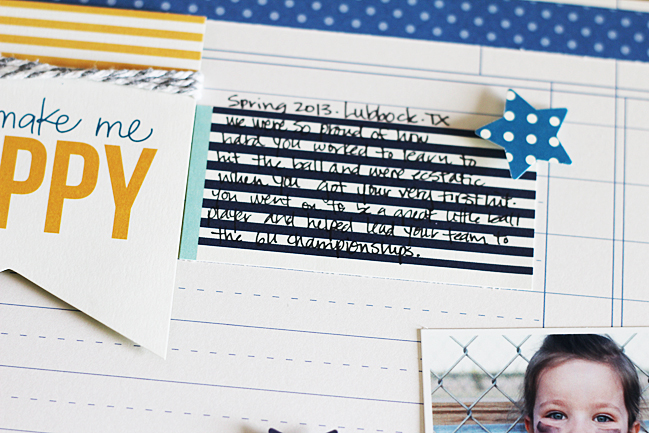 make me
PPY
Spring 2013. Lubbock. TX
we were so proud of how
hard you worked to learn to
hit the ball and were ecstatic
when you got your very first hit.
you went on to be a great little ball
player and helped lead your team to
the 6u championships.